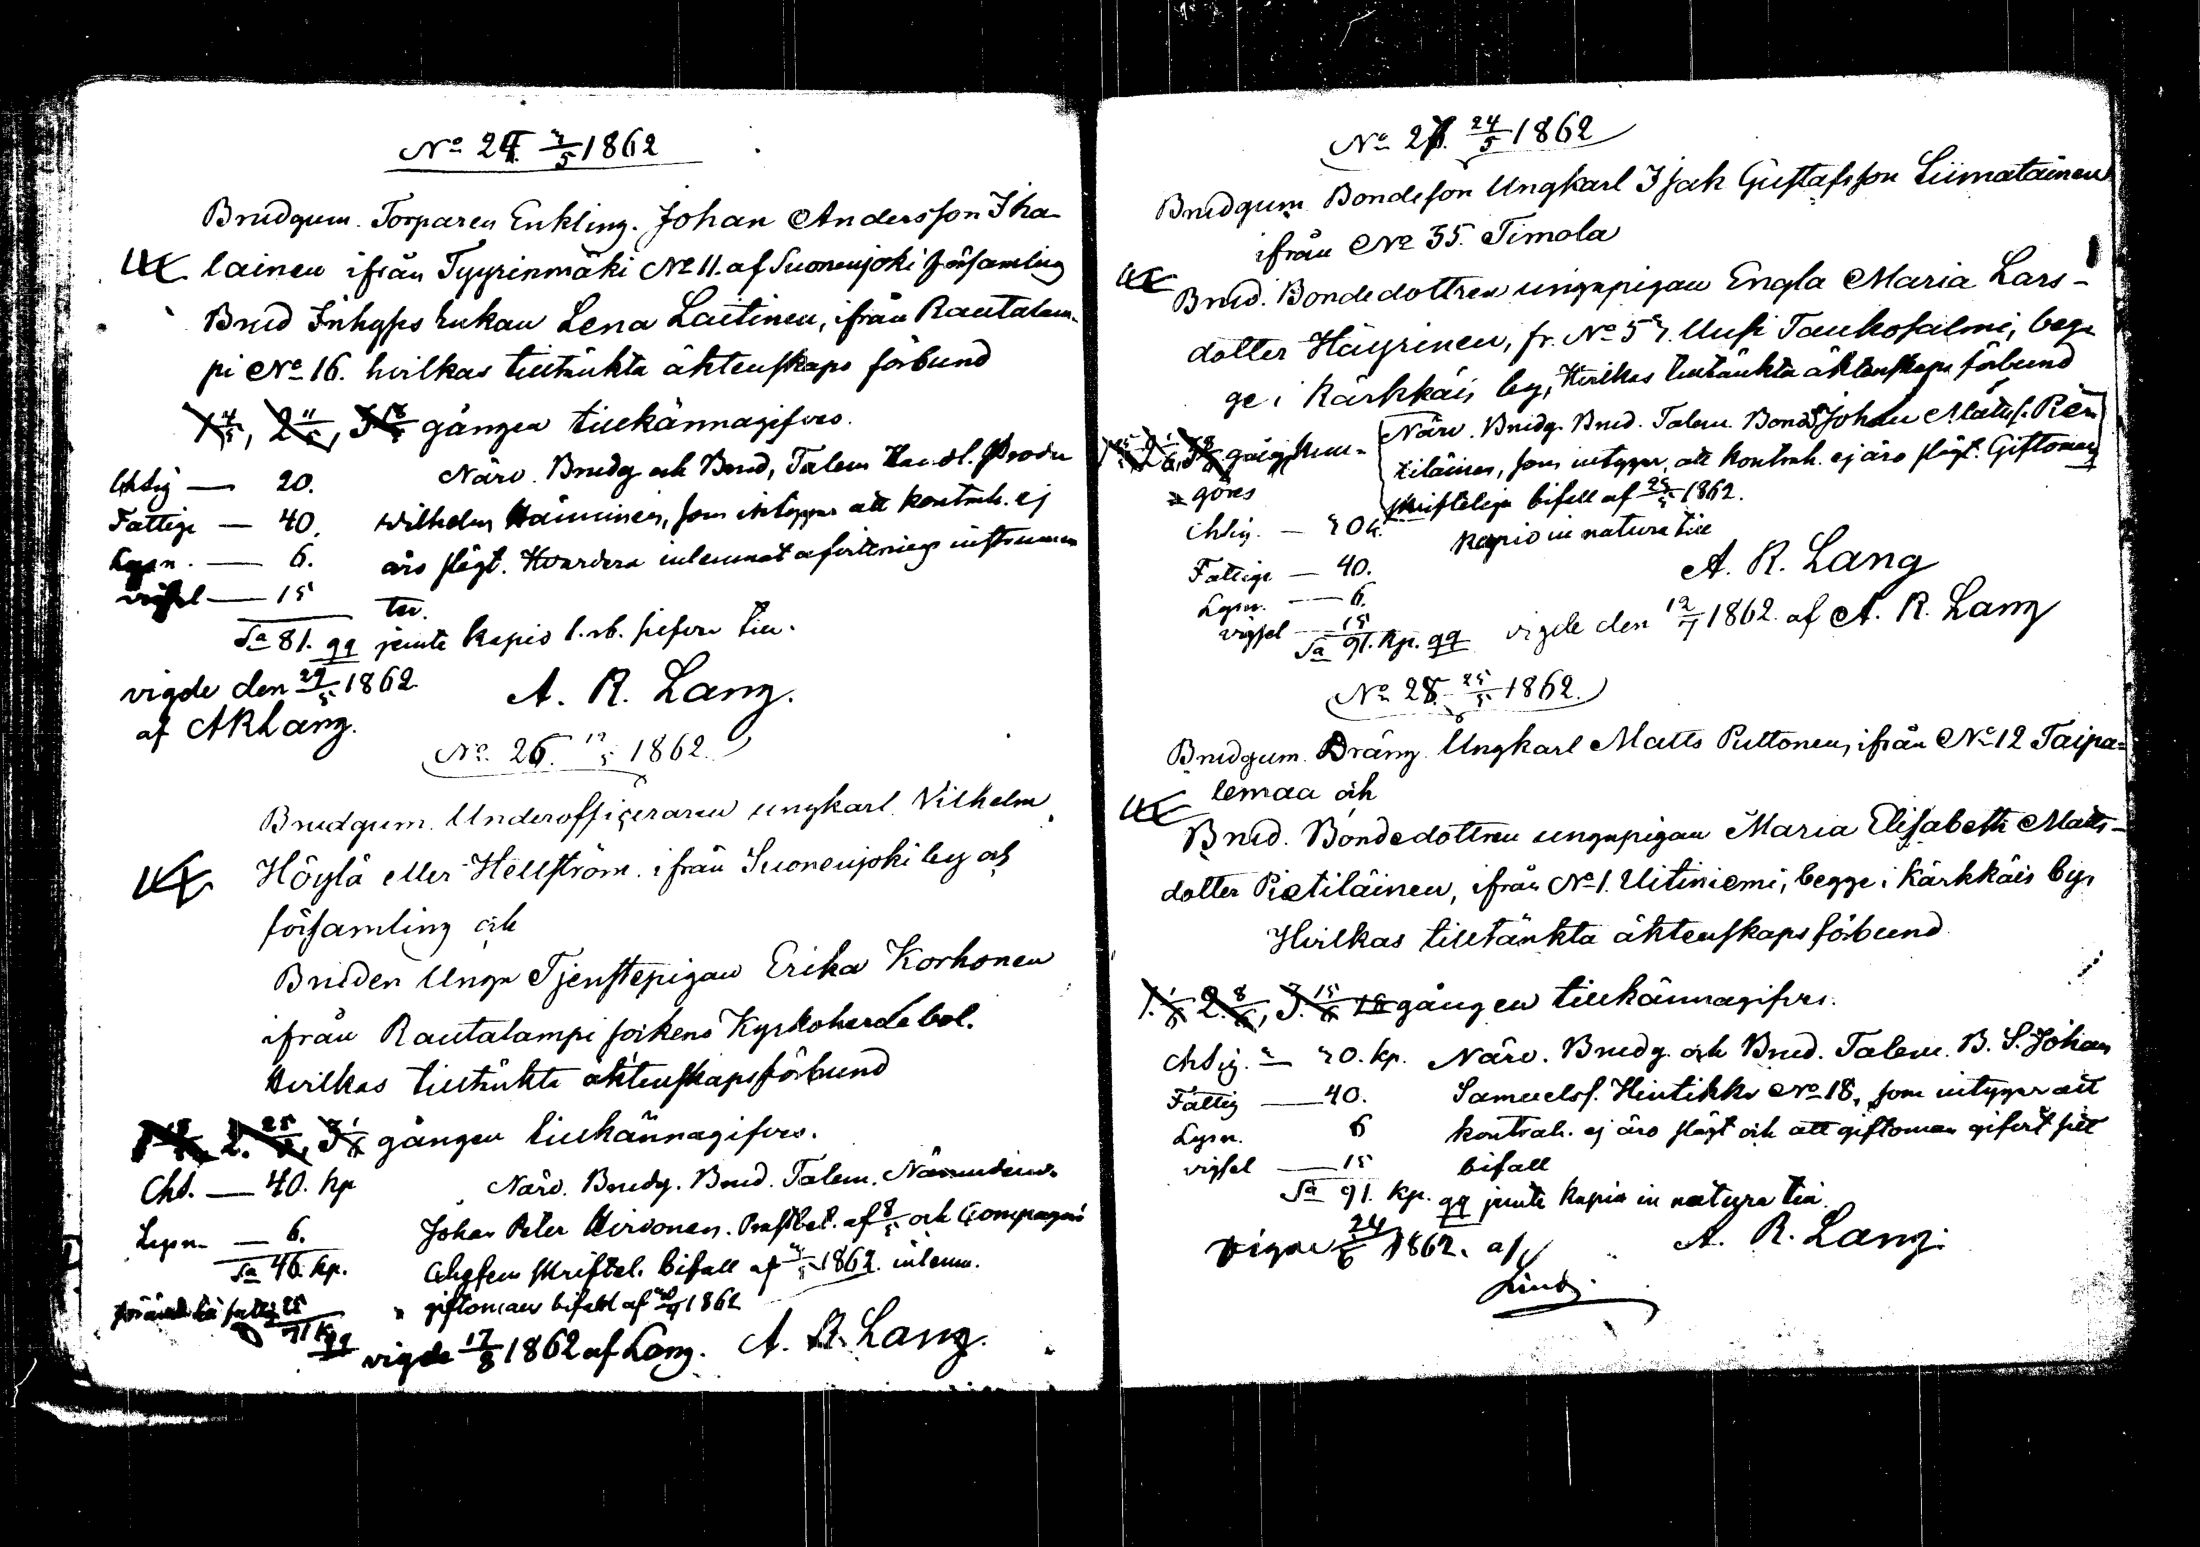 No 24. 3/5 1862
Brudgum. Torparen Enkling. Johan Andersson Iha-
lainen ifrån Tyyrinmäki No 11. af Suonenjoki församling
Brud Inhyses Enkan Lena Laitinen, ifrån Rautalam-
pi No 16. hvilkas tilltänkta äktenskaps förbund
1 4/5, 2 11/5, 3 18/5 gången tillkännagifves.
Chsig — 20.
Fattige — 40.
Lysn. — 6.
vigsel — 15
Sa 81. qq
Närv. Brudg och Brud, Talem Handl.
Wilhelm Hänninen, som intygar att kontrah. ej
äro slägt. Hvardera inlemnat afvittrings instrumen
ter.
jemte kapio l. rb. sifver till.
A. R. Lang.
vigde den 29/5 1862
af ARLang.
No. 26. 12/5 1862
Brudgum. Underofficeraren ungkarl. Vilhelm
Höylä eller Hellström. ifrån Suonenjoki by och
församling och
Bruden Unga Tjenstepigan Erika Korhonen
ifrån Rautalampi sockens Kyrkoherdebol.
Hvilkas tilltänkta äktenskapsförbund
1 18/5, 2. 25/5, 3 1/6 gången tillkännagifves.
Chs. — 40. kp
Lysn — 6.
Sa 46. kp.
fattig 25
71 K qq
Närv. Brudg. Brud. Talem. Nämndem.
Johan Peter Hirvonen. Prestbet. af 8/5 och Compagni
Chefens skriftel. bifall af 1862. inlemn.
giftomans bifall af 1862
vigde 17/8 1862 af Lang. A. R. Lang.
No 27. 24/5 1862
Brudgum Bondeson Ungkarl Isak Gustafsson Liimatainen
ifrån No 35. Timola
Brud. Bondedottren ungapigan Engla Maria Lars-
dotter Häyrinen, fr. No 57. Uusi Taukosalmi, beg-
ge i Kärkkäis by, Hvilkas tilltänkta äktenskaps förbund
gång, kun-
göres
Närv. Brudg. Brud. Talem. Bond. S Johan Matts. Pie-
tiläinen, som intygar, att kontrah. ej äro slägt. Giftoman
skrifteliga bifall af 25/5 1862.
kapio in natura till
Chsig. — 30 k.
Fattige — 40.
Lysn. — 6.
vigsel — 15
Sa 91. Kp. qq
A. R. Lang
vigde den 12/7 1862. af A. R. Lang
No 28. 25/5 1862.
Brudgum. Dräng. Ungkarl Matts Puttonen, ifrån No 12 Taipa-
lemaa och
Brud. Bondedottren ungapigan Maria Elisabeth Matts-
dotter Pietiläinen, ifrån No 1. Uitiniemi, begge i Kärkkäis by,
Hvilkas tilltänkta äktenskaps förbund
1. 1/6 2. 8/6, 3. 15/6 gången tillkännagifves.
Chsig. — 30. kp.
Fattig — 40.
Lysn. 6
vigsel — 15
Sa 91. Kp. qq
Närv. Brudg. och Brud. Talem. B. S. Johan
Samuelss. Hintikka No 18, som intygar att
kontrah. ej äro slägt och att giftoman gifvit sitt
bifall
jemte kapio in natura till
A. R. Lang.
vigde 24/6 1862. af
Lind.